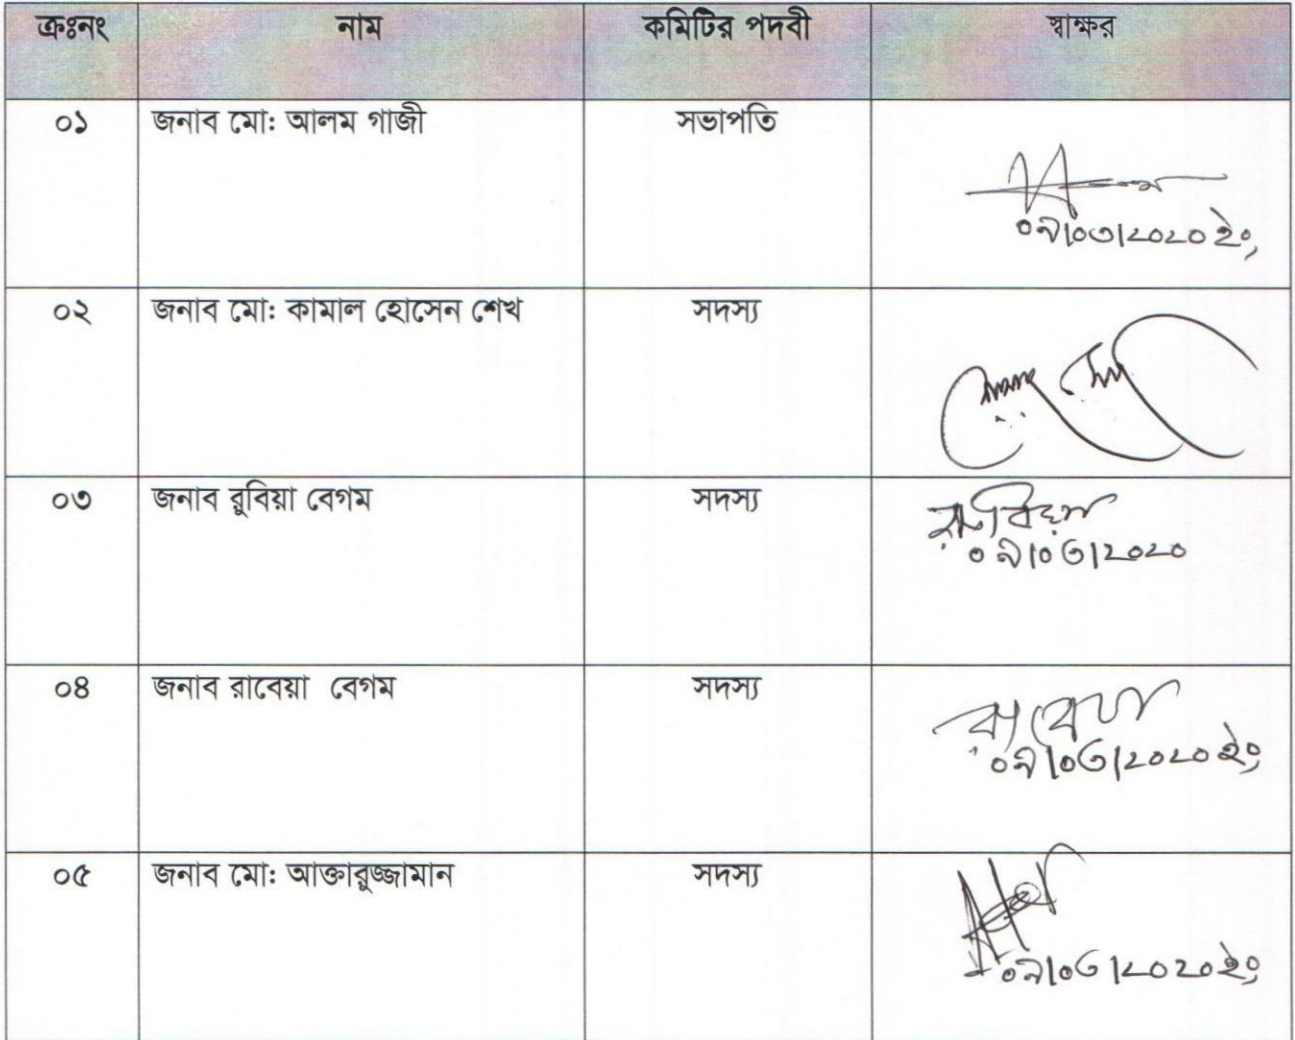 ক্রঃনং নাম কমিটির পদবী স্বাক্ষর
০১ জনাব মো: আলম গাজী সভাপতি
০৯/০৩/২০২০ ইং,
০২ জনাব মো: কামাল হোসেন শেখ সদস্য
০৩ জনাব রুবিয়া বেগম সদস্য রুবিয়া
০৯/০৩/২০২০
০৪ জনাব রাবেয়া বেগম সদস্য রাবেয়া
০৯/০৩/২০২০ ইং,
০৫ জনাব মো: আক্তারুজ্জামান সদস্য
০৯/০৩/২০২০ ইং,